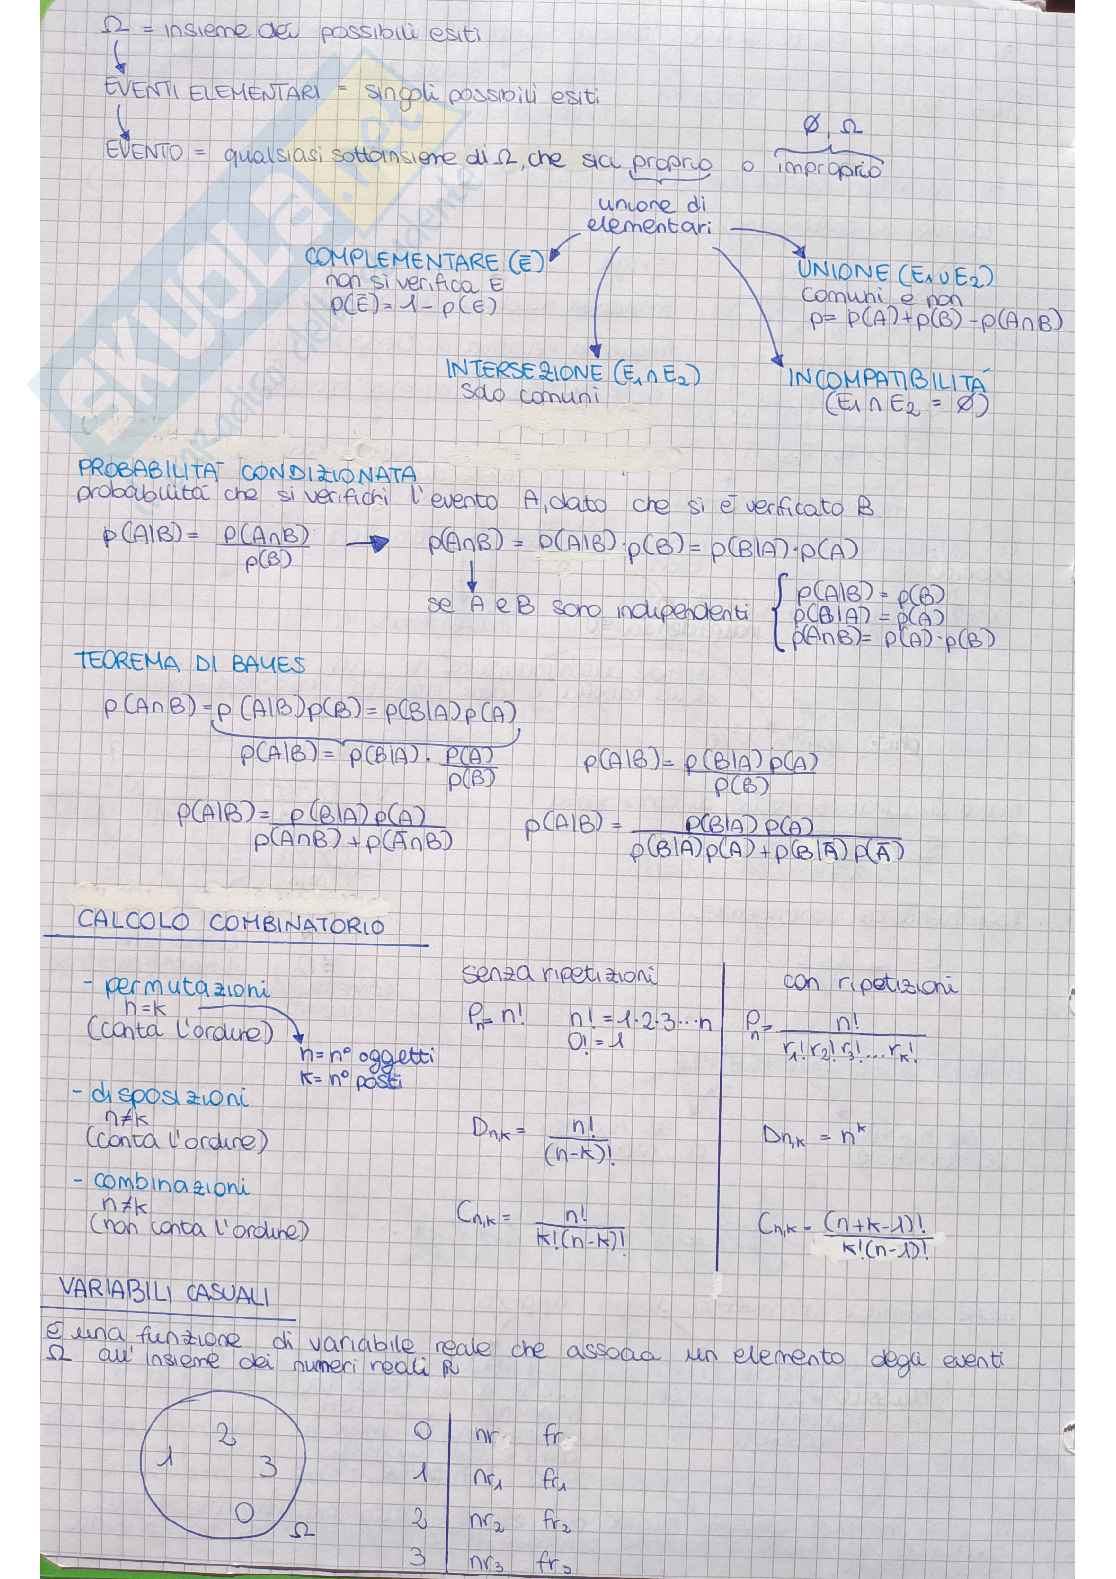 Ω = insieme dei possibili esiti
EVENTI ELEMENTARI = singoli possibili esiti
∅, Ω
EVENTO = qualsiasi sottoinsieme di Ω, che sia proprio o improprio
unione di
elementari
COMPLEMENTARE (Ē)
non si verifica E
p(Ē) = 1 - p(E)
UNIONE (E₁∪E₂)
comuni e non
p= p(A)+p(B)-p(A∩B)
INTERSEZIONE (E₁∩E₂)
solo comuni
INCOMPATIBILITÀ
(E₁∩E₂ = ∅)
PROBABILITÀ CONDIZIONATA
probabilità che si verifichi l'evento A, dato che si è verificato B
p(A|B) = p(A∩B) / p(B) → p(A∩B) = p(A|B)·p(B) = p(B|A)·p(A)
se A e B sono indipendenti { p(A|B) = p(B)
p(B|A) = p(A)
p(A∩B) = p(A)·p(B)
TEOREMA DI BAYES
p(A∩B) = p(A|B)p(B) = p(B|A)p(A)
p(A|B) = p(B|A) · p(A) / p(B)
p(A|B) = p(B|A)p(A) / p(B)
p(A|B) = p(B|A)p(A) / p(A∩B)+p(Ā∩B)
p(A|B) = p(B|A)p(A) / p(B|A)p(A)+p(B|Ā)p(Ā)
CALCOLO COMBINATORIO
senza ripetizioni
con ripetizioni
- permutazioni
n=k
(conta l'ordine)
n= n° oggetti
k= n° posti
Pn = n! n! = 1·2·3···n
0! = 1
Pn = n! / r₁! r₂! r₃! ... rk!
- disposizioni
n≠k
(conta l'ordine)
Dn,k = n! / (n-k)!
Dn,k = n^k
- combinazioni
n≠k
(non conta l'ordine)
Cn,k = n! / k!(n-k)!
Cn,k = (n+k-1)! / k!(n-1)!
VARIABILI CASUALI
È una funzione di variabile reale che associa un elemento degli eventi
Ω all'insieme dei numeri reali R
2
1
3
0
Ω
0 nr fr
1 nr₁ fr₁
2 nr₂ fr₂
3 nr₃ fr₃
SKUOLA.net